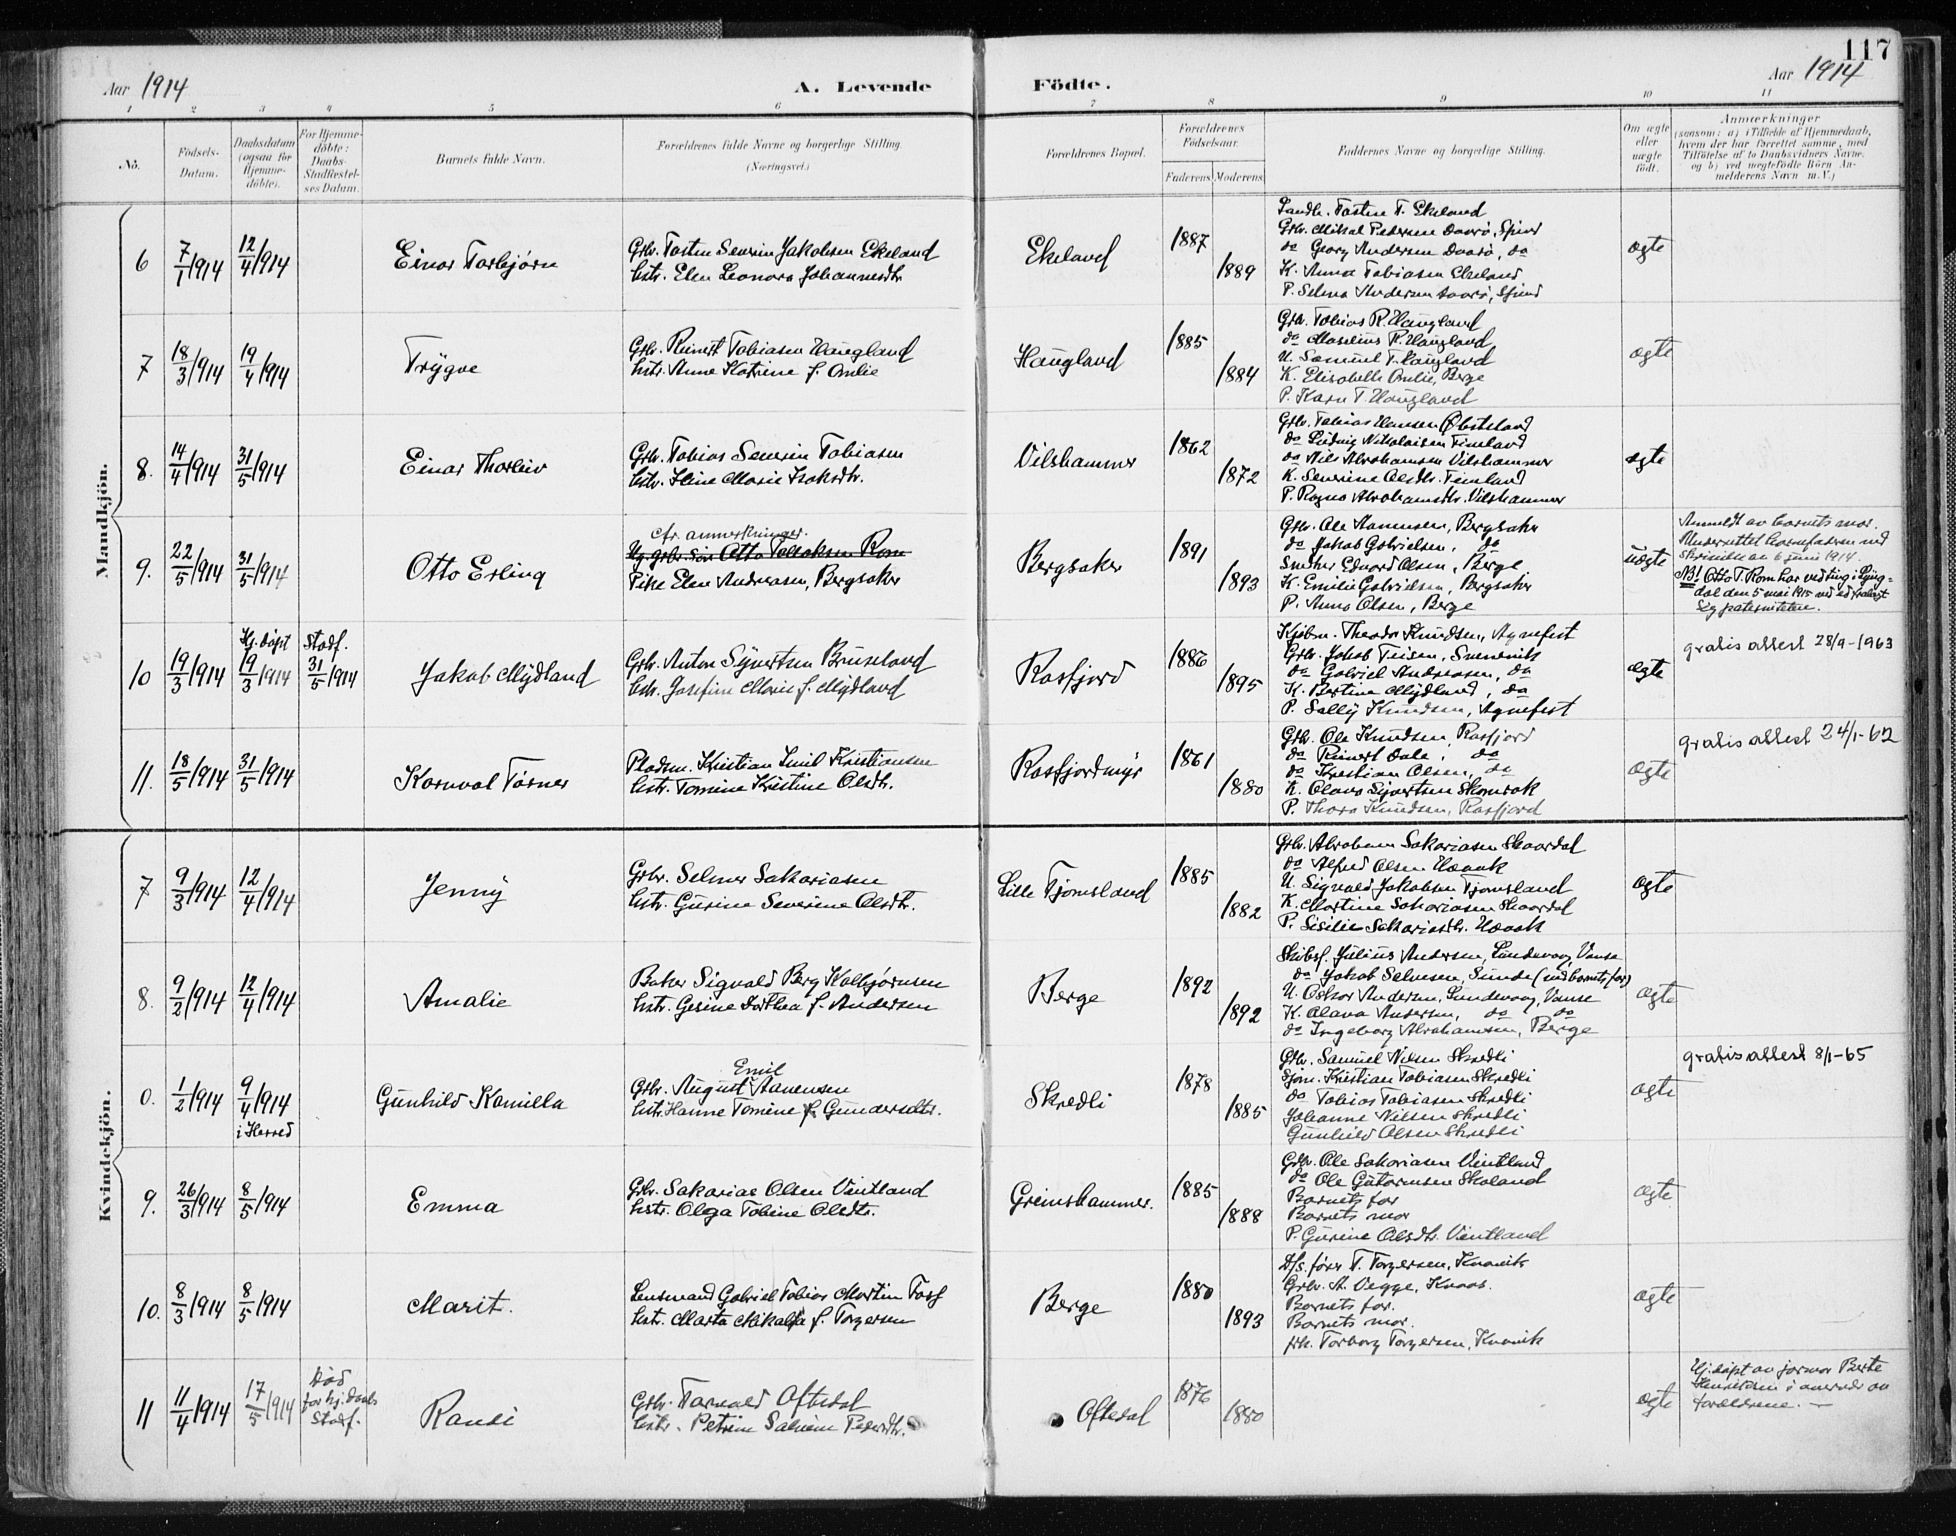 117
Aar 1914
A. Levende
Födte.
Aar 1914
1 2 3 4 5 6 7 8 9 10 11
No.
Födsels-Datum.
Daabsdatum (ogsaa for Hjemme-döbte).
For Hjemme-döbte: Daabs-Stadfæstel-ses Datum.
Barnets fulde Navn.
Forældrenes fulde Navne og borgerlige Stilling.
(Næringsvei.)
Forældrenes Bopæl.
Forældrenes Födselsaar.
Faderens Moderens
Faddernes Navne og borgerlige Stilling.
Om ægte eller uægte födt.
Anmærkninger
(saasom: a) i Tilfælde af Hjemmedaab,
hvem der har forrettet samme, med
Tilföielse af to Daabsvidners Navne,
og b) ved uegtefödte Börn An-
melderens Navn m. V.)
Mandkjön.
6 7/1 1914 12/4 1914 Einar Torbjørn
Grbr. Tosten Severin Jakobsen Ekeland
hstr. Elen Leonora Johannesdtr.
Ekeland 1887 1889
Landh. Tosten T. Ekeland
Grbr. Mikal Pedersen Daarø, Spind
do Georg Andersen Daarø, do
K. Anna Tobiasen Ekeland
P. Selma Andersen Daarø, Spind
ægte
7 18/3 1914 19/4 1914 Trygve
Grbr. Reinert Tobiasen Haugland
hstr. Anne Katrine f. Omlie
Haugland 1885 1884
Grbr. Tobias R. Haugland
do Maselius R. Haugland
U. Samuel T. Haugland
K. Elisabeth Omlie, Berge
P. Karn T. Haugland
ægte
8. 14/4 1914 31/5 1914 Einar Thorleiv
Grbr. Tobias Severin Tobiasen
hstr. Stine Marie Isaksdtr.
Vilshammer 1862 1872
Grbr. Tobias Hansen Øbsteland
do Ludvig Nikolaisen Fimland
do Nils Abrahamsen Vilshammer
K. Severine Olsdtr. Fimland
P. Ragna Abrahamsdtr. Vilshammer
ægte
9. 22/5 1914 31/5 1914 Otto Erling
cfr. anmerkninger.
Ug. grbr. søn Otto Tollaksen Rom
Pike Elen Andreasen, Bergsaker
Bergsaker 1891 1893
Grbr. Ole Aanensen, Bergsaker
do Jakob Gabrielsen, do
Snekker Edvard Olsen, Berge
K. Emilie Gabrielsen, Bergsaker
P. Anna Olsen, Berge
uægte
Anmeldt av barnets mor.
Underrettet barnefaderen ved
skrivelse av 6 juni 1914.
NB! Otto T. Rom har ved ting i Lyng-
dal den 5 mai 1915 med ed fralagt
sig paterniteten.
10 19/3 1914 Hj. døpt 19/3 1914 Stadf. 31/5 1914 Jakob Mydland
Grbr. Anton Syvertsen Bruseland
hstr. Josefine Marie f. Mydland
Rosfjord 1886 1895
Kjøbm. Theodor Knudsen, Agnefest
Grbr. Jakob Teisen, Svenevik
do Gabriel Andreasen, do
K. Bertine Mydland, do
P. Sally Knudsen, Agnefest
ægte
gratis attest 28/9-1963
11. 18/5 1914 31/5 1914 Kornval Torner
Pladsm. Kristian Emil Kristiansen
hstr. Tomine Kristine Olsdtr.
Rosfjordmyr 1861 1880
Grbr. Ole Knudsen, Rosfjord
do Reinert Dale, do
do Kristian Olsen, do
K. Olava Sivertsen Skomrak
P. Thora Knudsen, Rosfjord
ægte
gratis attest 24/1-62
Kvindekjön.
7 9/3 1914 12/4 1914 Jenny
Grbr. Selmer Sakariasen
hstr. Gurine Severine Olsdtr.
Lille Tjomsland 1885 1882
Grbr. Abraham Sakariasen Skaardal
do Alfred Olsen Hævak
U. Sigvald Jakobsen Tjomsland
K. Martine Sakariasen Skaardal
P. Sisilie Sakariasdtr. Hævak
ægte
8. 9/2 1914 12/4 1914 Amalie
Baker Sigvald Berg Kolbjørnsen
hstr. Gesine Dorthea f. Andersen
Berge 1892 1892
Skibsf. Julius Andersen, Lundevog, Vanse
do Jakob Selvesen, Sunde (ved barnets far)
U. Oskar Andersen, Lundevaag, Vanse
K. Olava Andersen, do, do
do Ingeborg Abrahamsen, Berge
ægte
0. 1/2 1914 9/4 1914 i Herred Gunhild Kamilla
Grbr. August Emil Aanensen
hstr. Hanne Tomine f. Gundersdtr.
Skredli 1878 1885
Grbr. Samuel Nilsen Skredli
Sjøm. Kristian Tobiasen Skredli
do Tobias Tobiasen Skredli
Johanne Nilsen Skredli
Gunhild Olsen Skredli
ægte
gratis attest 8/1-65
9. 26/3 1914 8/5 1914 Emma
Grbr. Sakarias Olsen Vintland
hstr. Olga Tobine Olsdtr.
Greimshammer. 1885 1888
Grbr. Ole Sakariasen Vintland
do Ole Gutormsen Skoland
Barnets far
Barnets mor
P. Gurine Olsdtr. Vintland
ægte
10. 8/3 1914 8/5 1914 Marit.
Lensmand Gabriel Tobias Martin Foss
hstr. Marta Mikalea f. Torgersen
Berge 1880 1893
D/S. fører T. Torgersen, Kvavik
Grbr. A. Vegge, Kvaas.
Barnets far.
Barnets mor.
frk. Torborg Torgersen, Kvavik
ægte
11 11/4 1914 17/5 1914 Død før hj. daabs Stadf. Randi
Grbr. Torvald Oftedal
hstr. Petrine Salvine Pedersdtr.
Oftedal 1876 1880
ægte
Hj. døpt av jormor Berte
Henriksen i nærvær av
forældrene.